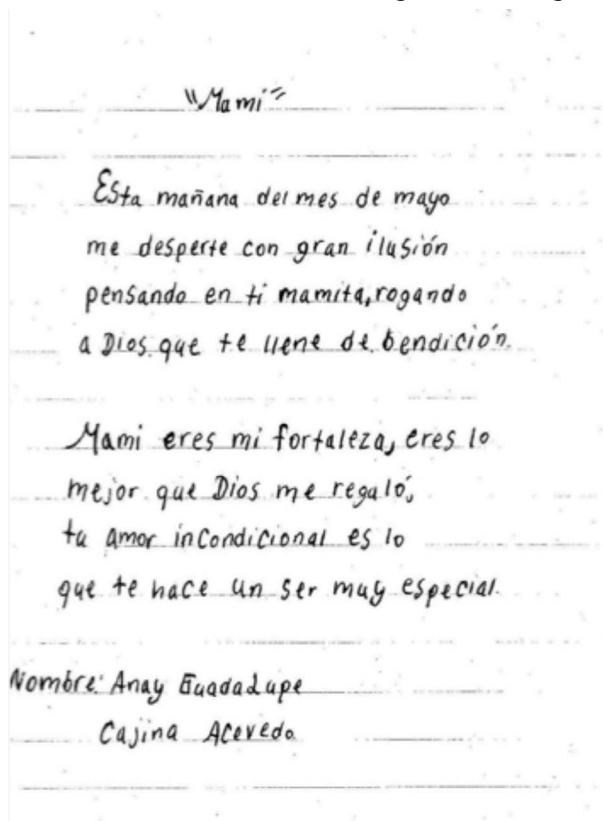 "Mami"
Esta mañana del mes de mayo
me desperte con gran ilusión
pensando en ti mamita, rogando
a Dios que te llene de bendición.
Mami eres mi fortaleza, eres lo
mejor que Dios me regaló,
tu amor incondicional es lo
que te hace un ser muy especial.
Nombre: Anay Guadalupe
Cajina Acevedo